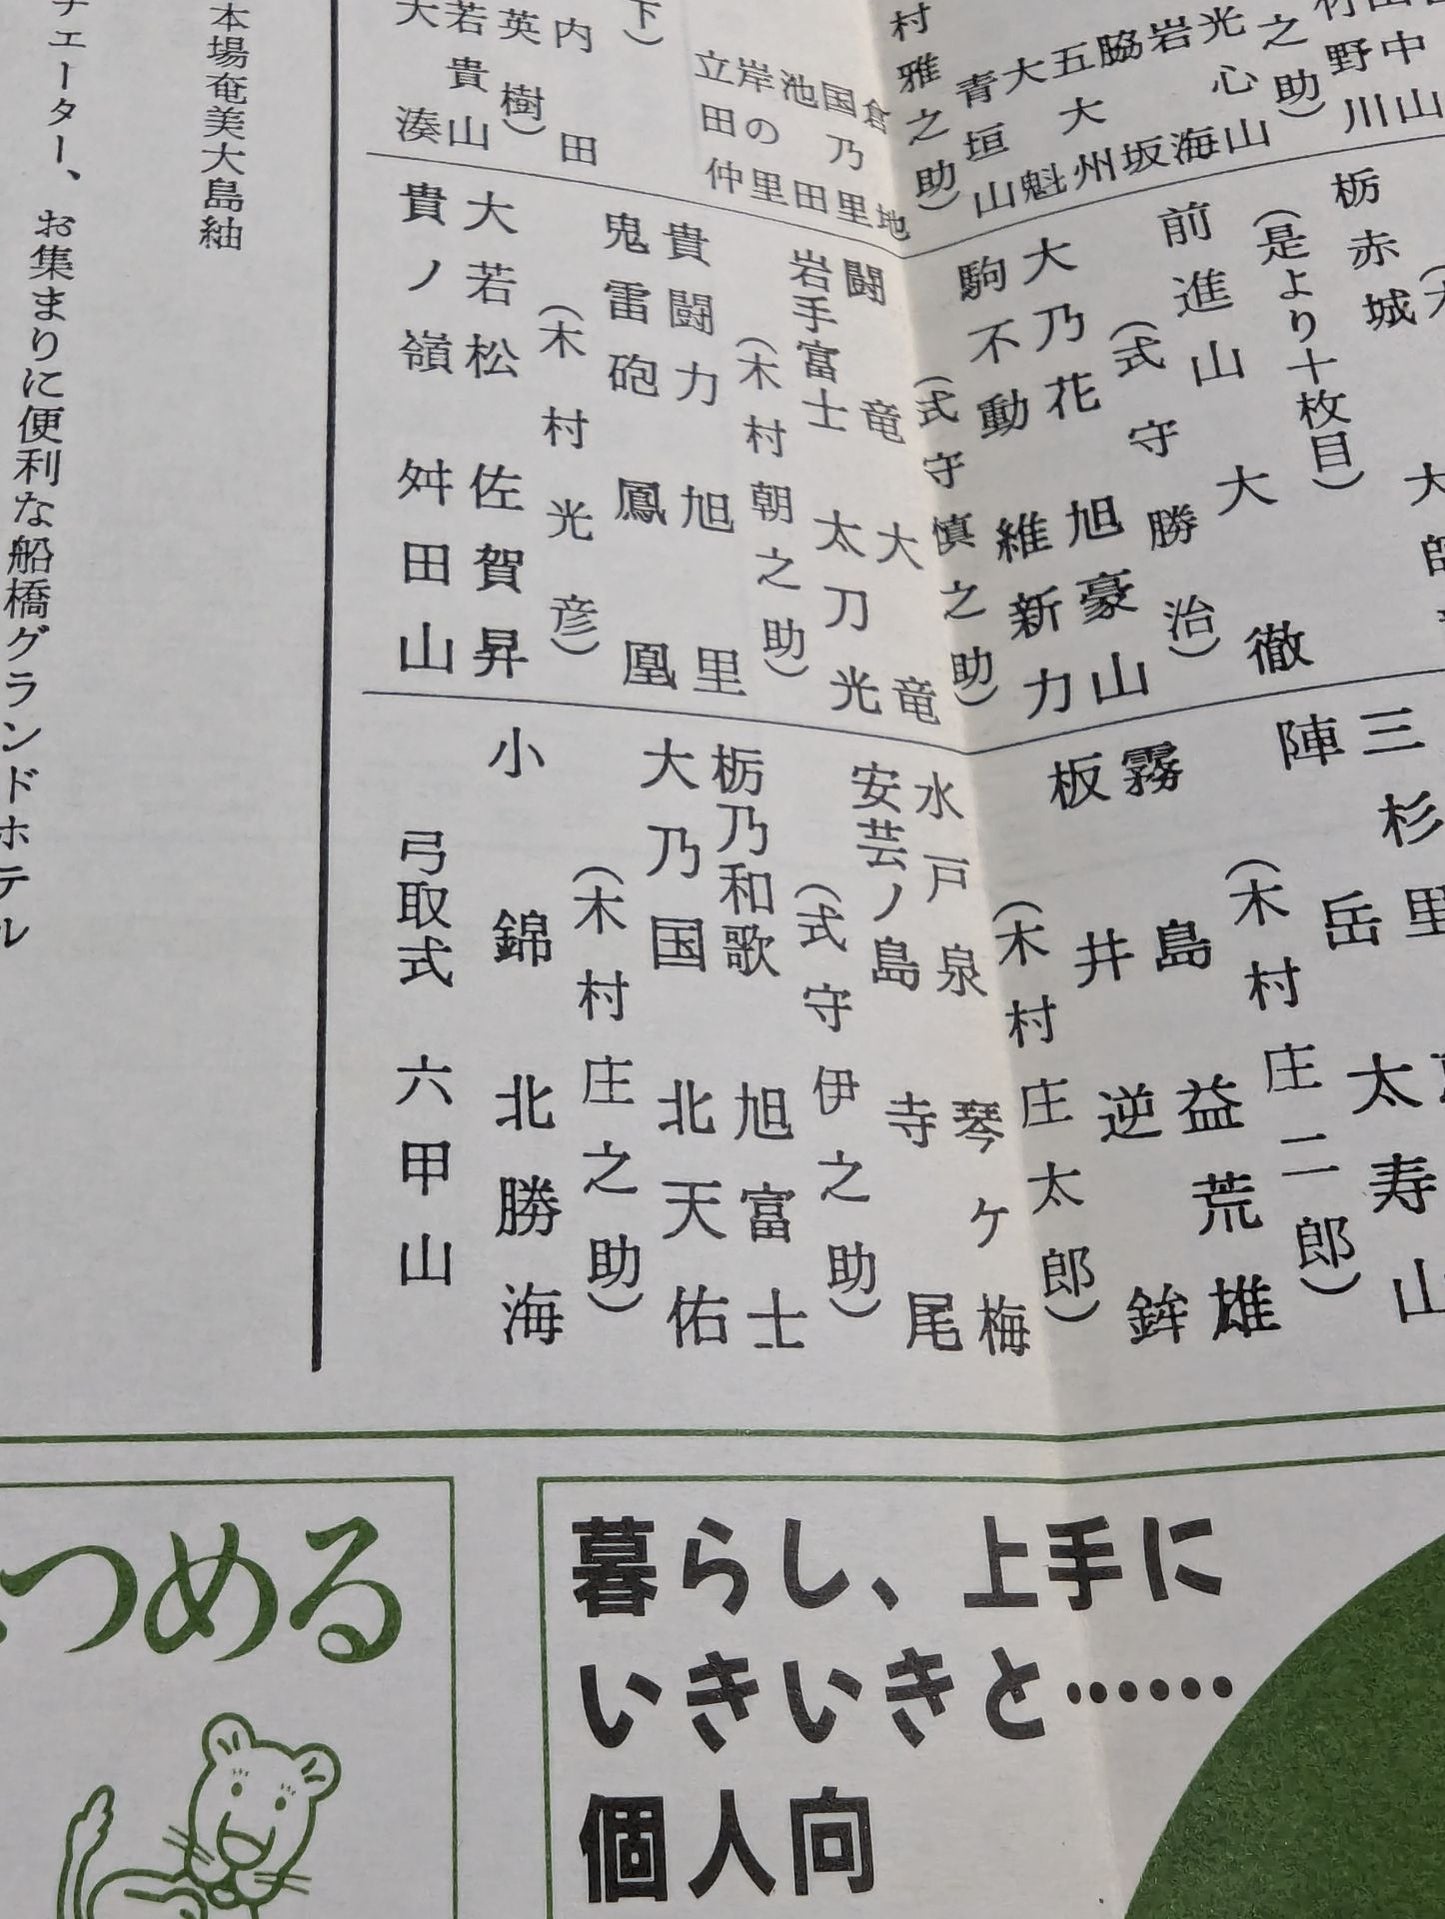 中山
野川
之助）
光心山
岩海
脇坂
五大州
大魁
青垣山
村雅之助）
倉地
国乃里
池田
岸の里
立田仲
下）
内田
英樹）
若貴山
大湊
栃赤城
（是より十枚目）
前進山 大徹
（式守勝治）
大乃花 旭豪山
駒不動 維新力
（式守慎之助）
闘竜 大竜
岩手富士 太刀光
（木村朝之助）
貴闘力 旭里
鬼雷砲 鳳凰
（木村光彦）
大若松 佐賀昇
貴ノ嶺 舛田山
三杉里
陣岳 太寿山
（木村庄二郎）
霧島 益荒雄
板井 逆鉾
（木村庄太郎）
水戸泉 琴ヶ梅
安芸ノ島 寺尾
（式守伊之助）
栃乃和歌 旭富士
大乃国 北天佑
（木村庄之助）
小錦 北勝海
弓取式 六甲山
本場奄美大島紬
チェーター、お集まりに便利な船橋グランドホテル
暮らし、上手に
いきいきと……
個人向
つめる